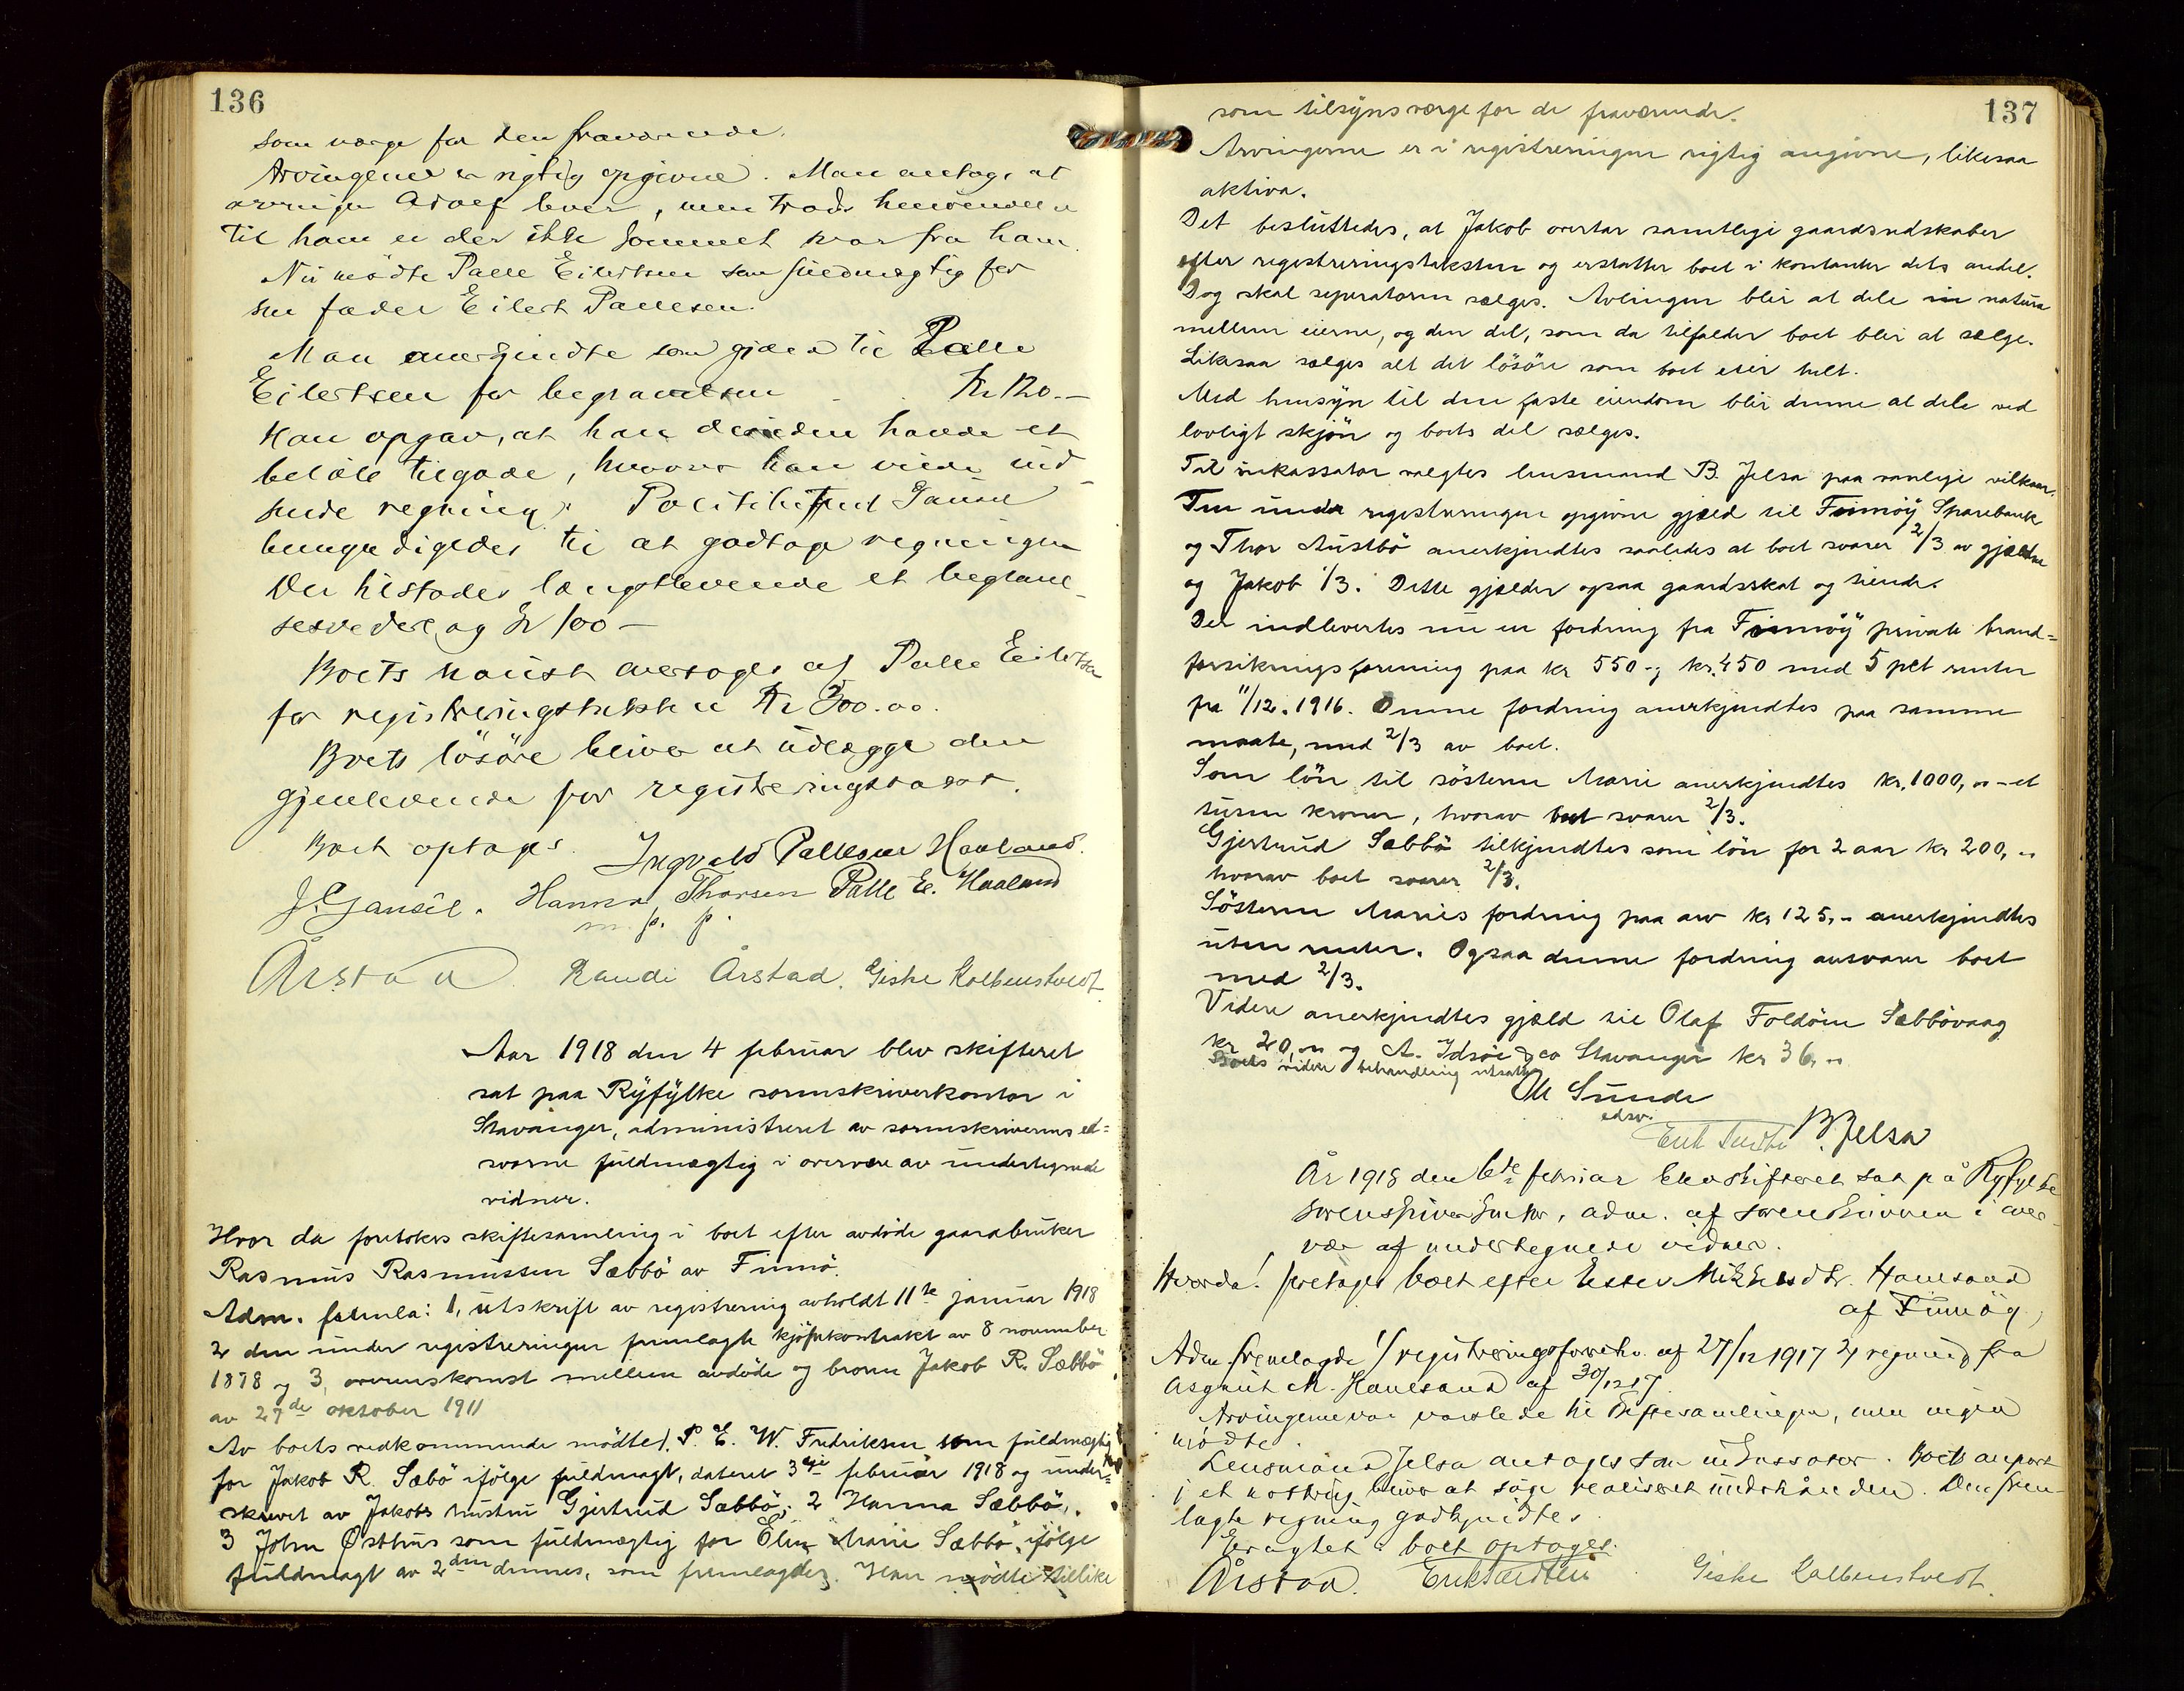 136
som værge for den fraværende.
Arvingene er rigtig opgivne. Man antog, at
arvingen Adolf lever, men trods henvendelse
til ham er der ikke kommet svar fra ham.
Nu mødte Palle Eilertsen som fuldmægtig for
sin fader Eilert Pallesen.
Man anerkjendte som gjæld til Palle
Eilertsen for begravelsen Kr 120.–
Han opgav, at han desuden havde et
beløb tilgode, hvorover han vilde ind-
sende regning. Politibetjent Gausel
bemyndigedes til at godtage regningen
Der tilstodes længstlevende et begravel-
sesvederlag Kr 100 –
Boets naust overtoges af Palle Eilertsen
for registreringstaksten Kr 300.00.
Boets lösöre bliver at udlægge den
gjenlevende for registreringstakst.
Boet optoges. Ingvald Pallesen Haaland.
J. Gausel. Hanna Thorsen Palle E. Haaland
m. p. p.
Årstad. Randi Årstad. Giske Kolbenstvedt.
Aar 1918 den 4 februar blev skifteret
sat paa Ryfylke sorenskriverkontor i
Stavanger, administreret av sorenskriverens ed-
svorne fuldmægtig i overvær av undertegnede
vidner.
Hvor da foretokes skiftesamling i boet efter avdöde gaardbruker
Rasmus Rasmussen Sæbbö av Finnö.
Adm. fremla: 1, utskrift av registrering avholdt 11te januar 1918
2 den under registreringen fremlagte kjöpekontrakt av 8 november
1878 og 3, overenskomst mellem avdöde og broren Jakob R. Sæbbö
av 27de oktober 1911
Av boets vedkommende mödte 1. P. E. W. Fredriksen som fuldmægtig
for Jakob R. Sæbö ifölge fuldmagt, dateret 3dje februar 1918 og under-
skrevet av Jakobs hustru Gjertrud Sæbbö, 2 Hanna Sæbbö,
3 John Østhus som fuldmægtig for Elen Marie Sæbbö, ifölge
fuldmagt av 2den dennes, som fremlagdes. Han mödte tillike
137
som tilsynsværge for de fraværende.
Arvingerne er i registreringen rigtig angivne, likesaa
aktiva.
Det besluttedes, at Jakob overtar samtlige gaardsredskaber
efter registreringstaksten og erstatter boet i kontanter dets andel.
Dog skal seperatoren sælges. Avlingen blir at dele in natura
mellem eierne, og den del, som da tilfalder boet blir at sælge.
Likesaa sælges alt det lösöre som boet eier helt.
Med hensyn til den faste eiendom blir denne at dele ved
lovligt skjön og boets del sælges.
Til inkassator valgtes lensmand B. Jelsa paa vanlige vilkaar.
Den under registreringen opgivne gjæld til Finnöy Sparebank
og Thor Austbö anerkjendtes saaledes at boet svarer 2/3 av gjælden
og Jakob 1/3. Dette gjælder ogsaa gaardsskat og tiende.
Der indlevertes nu en fordring fra Finnöy private brand-
forsikringsforening paa kr 550 -; kr. 450 med 5 pct renter
fra 11/12. 1916. Denne fordring anerkjendtes paa samme
maate, med 2/3 av boet.
Som lön til sösteren Marie anerkjendtes kr. 1000,00 – et
tusen kroner, hvorav boet svarer 2/3.
Gjertrud Sæbbö tilkjendtes som lön for 2 aar kr 200, –
hvorav boet svarer 2/3.
Sösteren Maries fordring paa arv kr 125,- anerkjendtes
uten renter. Ogsaa denne fordring ansvarer boet
med 2/3.
Videre anerkjendtes gjæld til Olaf Foldöen Sæbbövaag
kr 20,00 og A. Idsöe & co Stavanger kr 36,00
Boets videre behandling utsattes
Ole Sunde
edsv.
B Jelsa
År 1918 den 6te februar blev skifteret sat på Ryfylke
sorenskriverkontor, adm. af sorenskriveren i over-
vær af undertegnede vidner.
Hvorda! foretoges boet efter Ester Mikkelsdtr. Hauesand
af Finnöy.
Adm fremlagde 1/ registreringsforretn. af 27/12 1917 2/ regning fra
Asgaut M. Hauesand af 30/12 17.
Arvingerne var varslede til skiftesamlingen, men ingen
mödte.
Lensmand Jelsa antages som inkassator. Boets anpart
i et nöstrug bliver at söge realiseret underhånden. Den frem-
lagte regning godkjendtes.
Eragtet: boet optoges.
Årstad. Giske Kolbenstvedt.